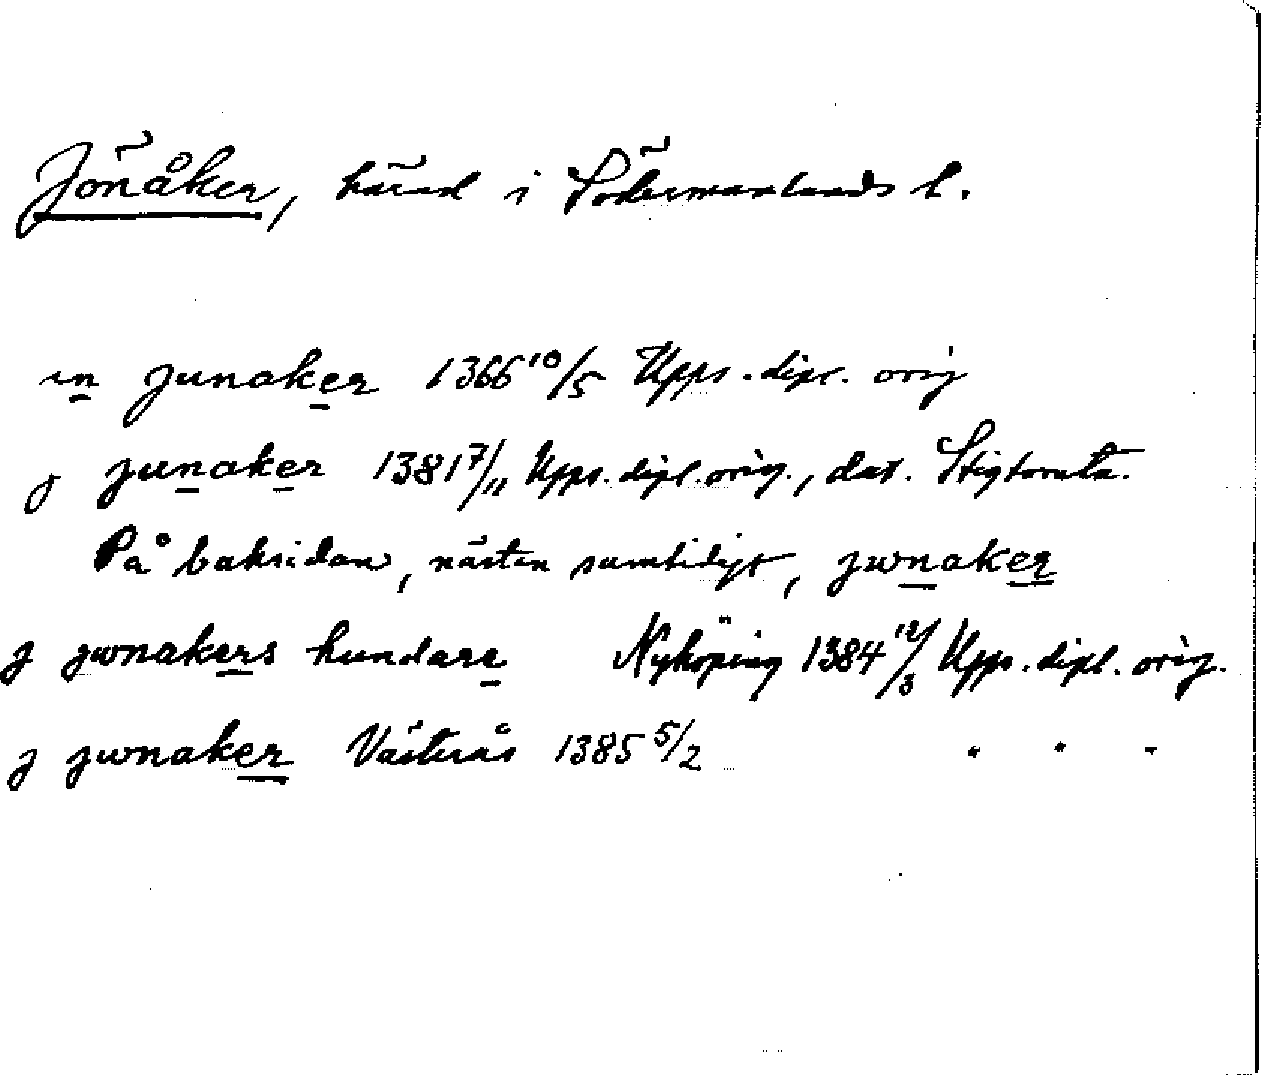 Jönåker, härad i Södermanlands l.
in junaker 1366 10/5 Upps. dipl. orig
j junaker 1381 7/11 Upps. dipl. orig., dat. Stigtomta.
På baksidan, nästan samtidigt, jwnaker
j jwnakers hundare Nyköping 1384 12/3 Upps. dipl. orig.
j jwnaker Västerås 1385 5/2 " " "